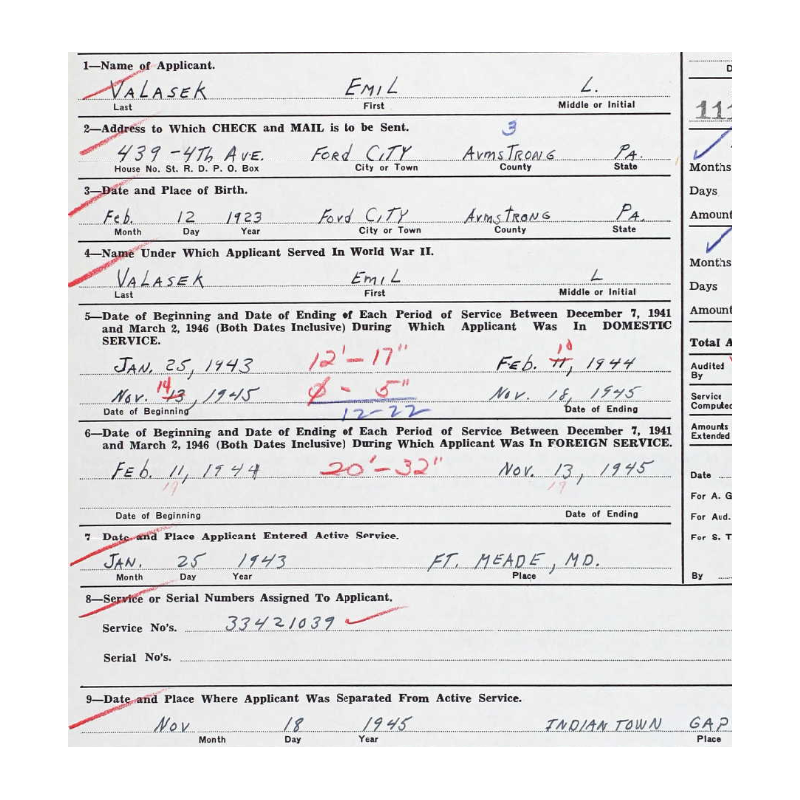 1—Name of Applicant.
VALASEK EMIL L.
Last First Middle or Initial
2—Address to Which CHECK and MAIL is to be Sent. 3
439 - 4Th AVE. FORD CITY ArmSTRONG PA.
House No. St. R. D. P. O. Box City or Town County State
3—Date and Place of Birth.
Feb. 12 1923 Ford CITY ArmSTRONG PA.
Month Day Year City or Town County State
4—Name Under Which Applicant Served In World War II.
VALASEK EmiL L
Last First Middle or Initial
5—Date of Beginning and Date of Ending of Each Period of Service Between December 7, 1941
and March 2, 1946 (Both Dates Inclusive) During Which Applicant Was In DOMESTIC
SERVICE.
10
JAN. 25, 1943 12'-17" FEB. 11, 1944
14
Nov. 13, 1945 0 - 5" Nov. 18, 1945
12-22
Date of Beginning Date of Ending
6—Date of Beginning and Date of Ending of Each Period of Service Between December 7, 1941
and March 2, 1946 (Both Dates Inclusive) During Which Applicant Was In FOREIGN SERVICE.
FEB. 11, 1944 20'-32" Nov. 13, 1945
Date of Beginning Date of Ending
7 Date and Place Applicant Entered Active Service.
JAN. 25 1943 FT. MEADE, MD.
Month Day Year Place
8—Service or Serial Numbers Assigned To Applicant.
Service No's. 33421039
Serial No's.
9—Date and Place Where Applicant Was Separated From Active Service.
Nov 18 1945 INDIANTOWN GAP
Month Day Year Place
D
111
Months
Days
Amount
Months
Days
Amount
Total A
Audited
By
Service
Computed
Amounts
Extended
Date
For A. G
For Aud.
For S. T
By